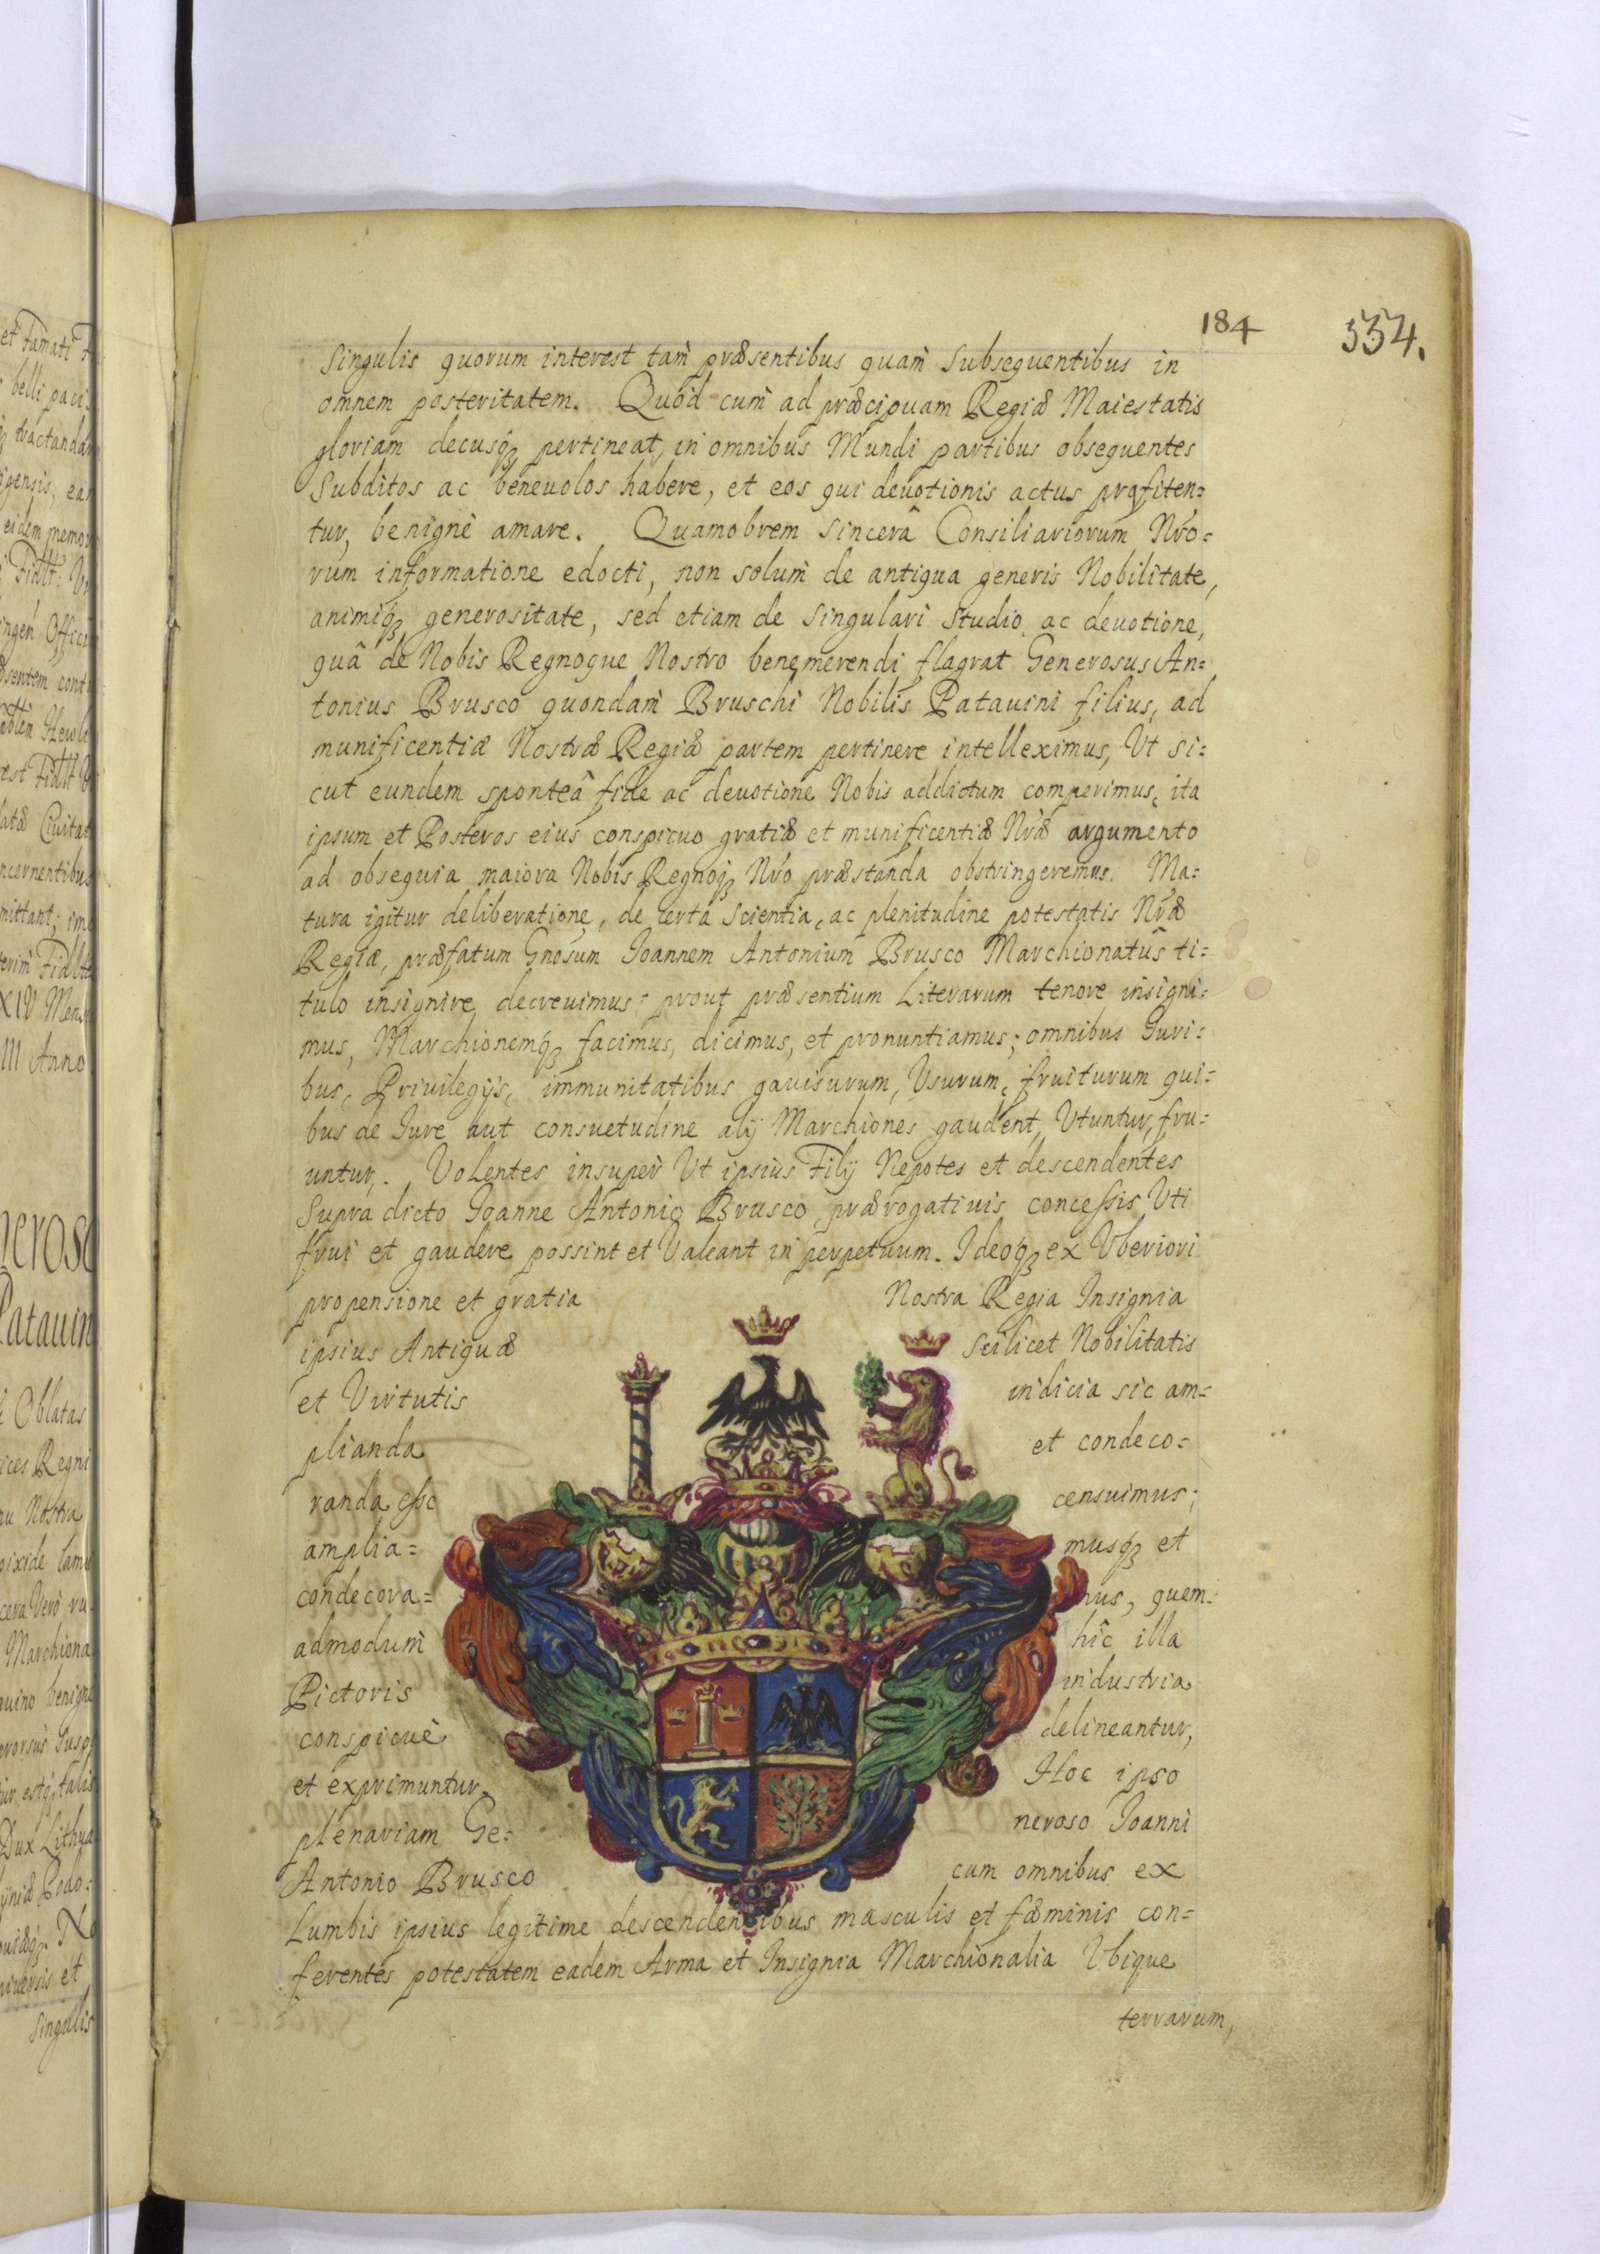 184
334.
Singulis quorum interest tam̀ præsentibus quam̀ subsequentibus in
omnem posteritatem. Quòd cum̀ ad præcipuam Regiæ Maiestatis
gloriam decusqꝫ pertineat, in omnibus Mundi partibus obsequentes
Subditos ac beneuolos habere, et eos qui deuotionis actus profiten=
tur, benignè amare. Quamobrem sincerâ Consiliariorum Nr̃o=
rum informatione edocti, non solum̀ de antiqua generis Nobilitate,
animiqꝫ generositate, sed etiam de singulari studio ac deuotione,
quâ de Nobis Regnoque Nostro benemerendi flagrat Generosus An=
tonius Brusco quondam̀ Bruschi Nobilis Patauini filius, ad
munificentiæ Nostræ Regiæ partem pertinere intelleximus, Vt si=
cut eundem sponteâ fide ac deuotione Nobis addictum comperimus, ita
ipsum et Posteros eius conspicuo gratiæ et munificentiæ Nr̃æ argumento
ad obsequia maiora Nobis Regnoqꝫ Nr̃o præstanda obstringeremus. Ma=
tura igitur deliberatione, de certa scientia, ac plenitudine potestatis Nr̃æ
Regiæ, præfatum Gnosum Joannem Antonium Brusco Marchionatûs ti=
tulo insignire decreuimus: prout præsentium Literarum tenore insigni=
mus, Marchionemqꝫ facimus, dicimus, et pronuntiamus; omnibus Juri=
bus, Priuilegijs, immunitatibus gauisurum, Vsurum, fruiturum qui=
bus de Jure aut consuetudine alij Marchiones gaudent, Vtuntur, fru=
untur,. Volentes insupèr Vt ipsius Filij Nepotes et descendentes
Supra dicto Joanne Antonio Brusco prærogatiuis concessis Vti
frui et gaudere possint et Valeant in perpetuum. Ideoqꝫ ex Vberiori
propensione et gratia Nostra Regia Insignia
ipsius Antiquæ Scilicet Nobilitatis
et Virtutis indicia sic am=
plianda et condeco=
randa esse censuimus;
amplia= musqꝫ et
condecora= mus, quem=
admodum̀ hîc illa
Pictoris industria
conspicuè delineantur,
et exprimuntur, Hoc ipso
plenariam Ge= neroso Joanni
Antonio Brusco cum omnibus ex
Lumbis ipsius legitime descendentibus masculis et fæminis con=
ferentes potestatem eadem Arma et Insignia Marchionalia Vbique
terrarum,